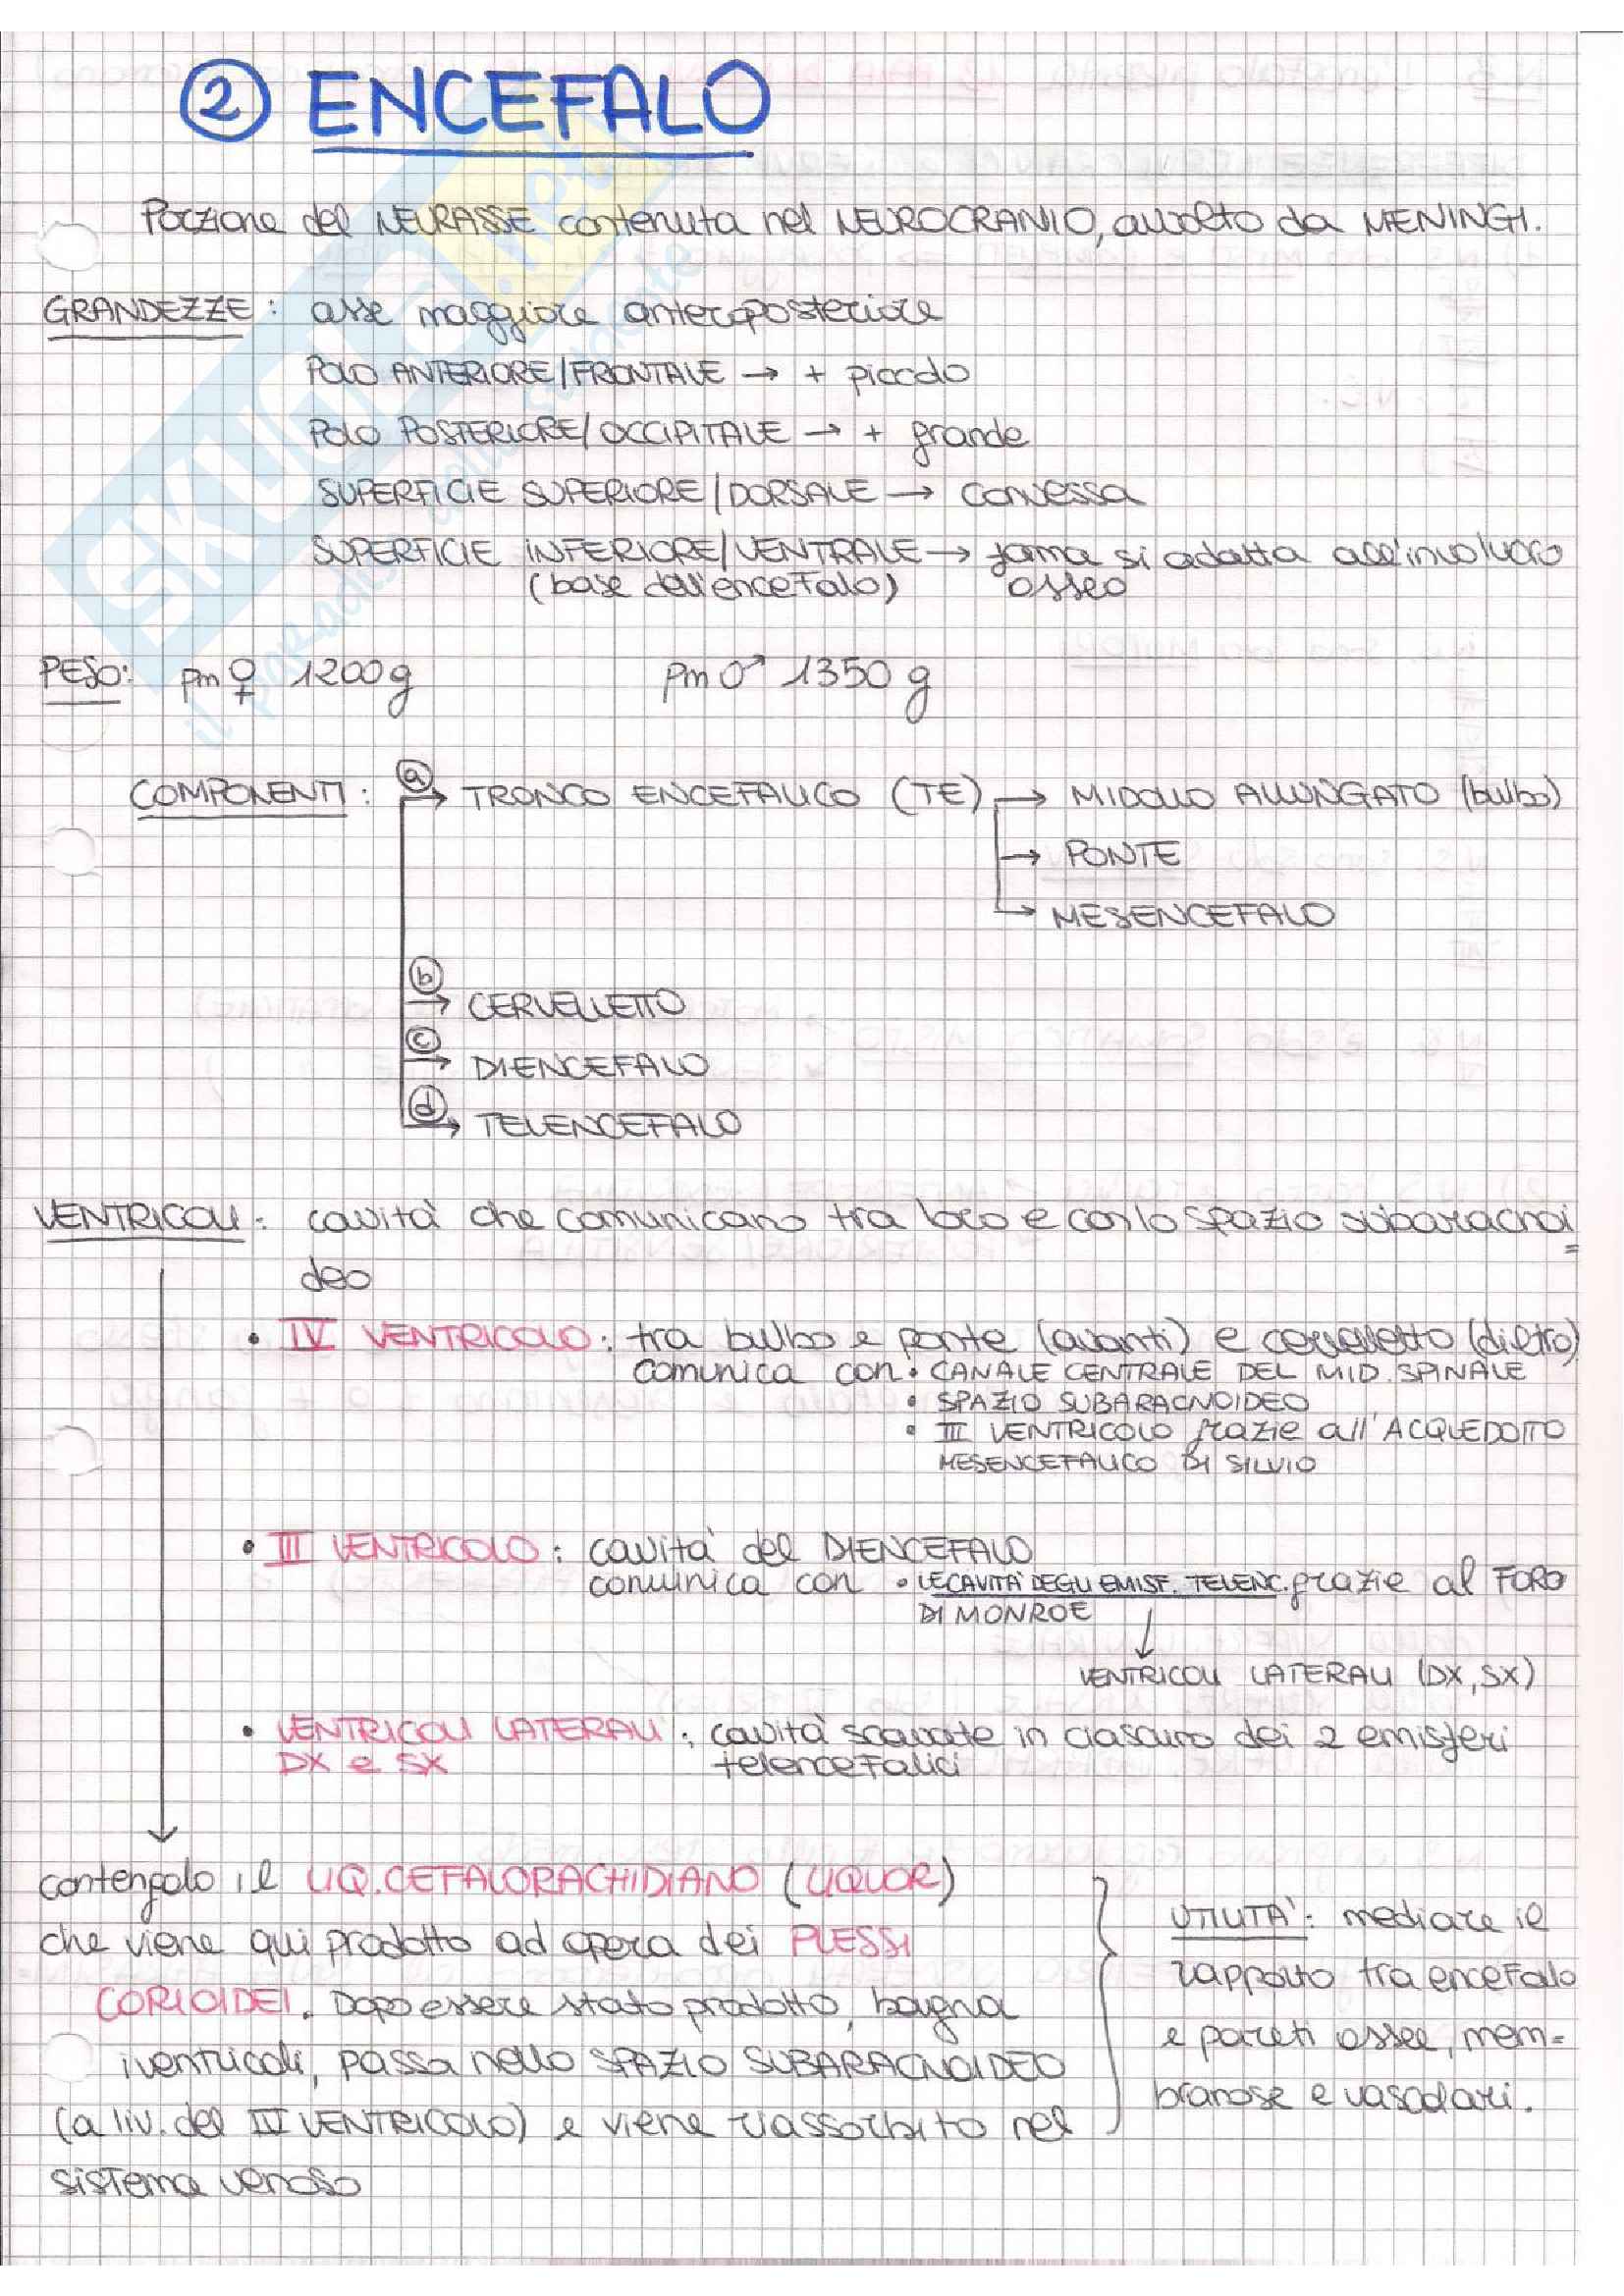 ② ENCEFALO
Porzione del NEURASSE contenuta nel NEUROCRANIO, avvolto da MENINGI.
GRANDEZZE: asse maggiore anteroposteriore
POLO ANTERIORE/FRONTALE → + piccolo
POLO POSTERIORE/OCCIPITALE → + grande
SUPERFICIE SUPERIORE/DORSALE → convessa
SUPERFICIE INFERIORE/VENTRALE → forma si adatta all'involucro
(base dell'encefalo) osseo
PESO: pm ♀ 1200 g pm ♂ 1350 g
COMPONENTI: ⓐ → TRONCO ENCEFALICO (TE) → MIDOLLO ALLUNGATO (bulbo)
→ PONTE
→ MESENCEFALO
ⓑ → CERVELLETTO
ⓒ → DIENCEFALO
ⓓ → TELENCEFALO
VENTRICOLI: cavità che comunicano tra loro e con lo spazio subaracnoi=
deo
• IV VENTRICOLO: tra bulbo e ponte (avanti) e cervelletto (dietro)
comunica con • CANALE CENTRALE DEL MID. SPINALE
• SPAZIO SUBARACNOIDEO
• III VENTRICOLO grazie all'ACQUEDOTTO
MESENCEFALICO DI SILVIO
• III VENTRICOLO: cavità del DIENCEFALO
comunica con • LE CAVITA' DEGLI EMISF. TELENC. grazie al FORO
DI MONROE
↓
VENTRICOLI LATERALI (DX, SX)
• VENTRICOLI LATERALI: cavità scavate in ciascuno dei 2 emisferi
DX e SX telencefalici
contengolo il LIQ. CEFALORACHIDIANO (LIQUOR)
che viene qui prodotto ad opera dei PLESSI
CORIOIDEI. Dopo essere stato prodotto, bagna
i ventricoli, passa nello SPAZIO SUBARACNOIDEO
(a liv. del IV VENTRICOLO) e viene riassorbito nel
sistema venoso
UTILITA': mediare il
rapporto tra encefalo
e pareti ossee, mem=
branose e vascolari.
SKUOLA.net
il paradiso dello studente